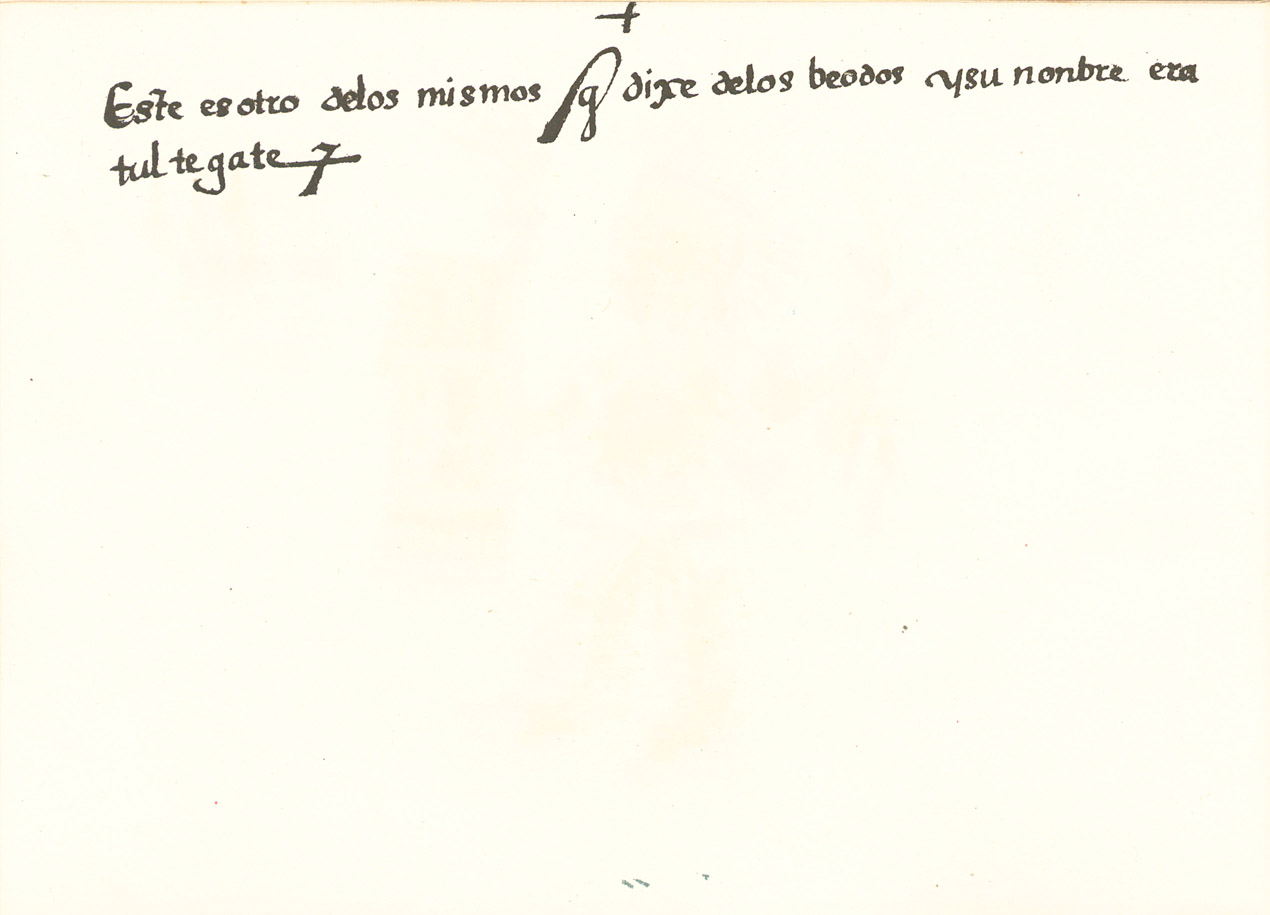 +
Este es otro delos mismos q dixe delos beodos ysu nonbre era
tultegate